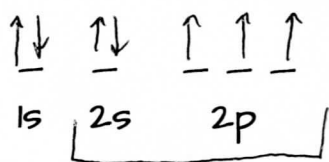 1s 2s 2p